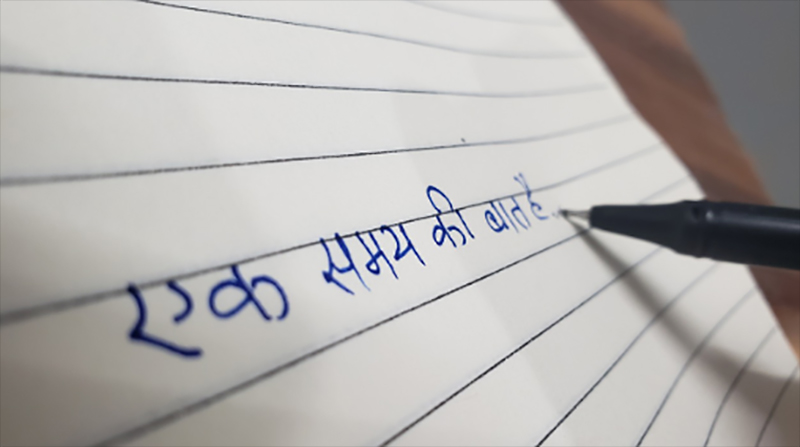 एक समय की बात है..